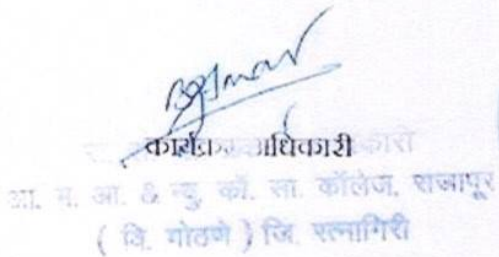 कार्यक्रम अधिकारी
आ. म. आ. & न्यु. कॉ. सा. कॉलेज, राजापूर
( वि. गोठणे ) जि. रत्नागिरी